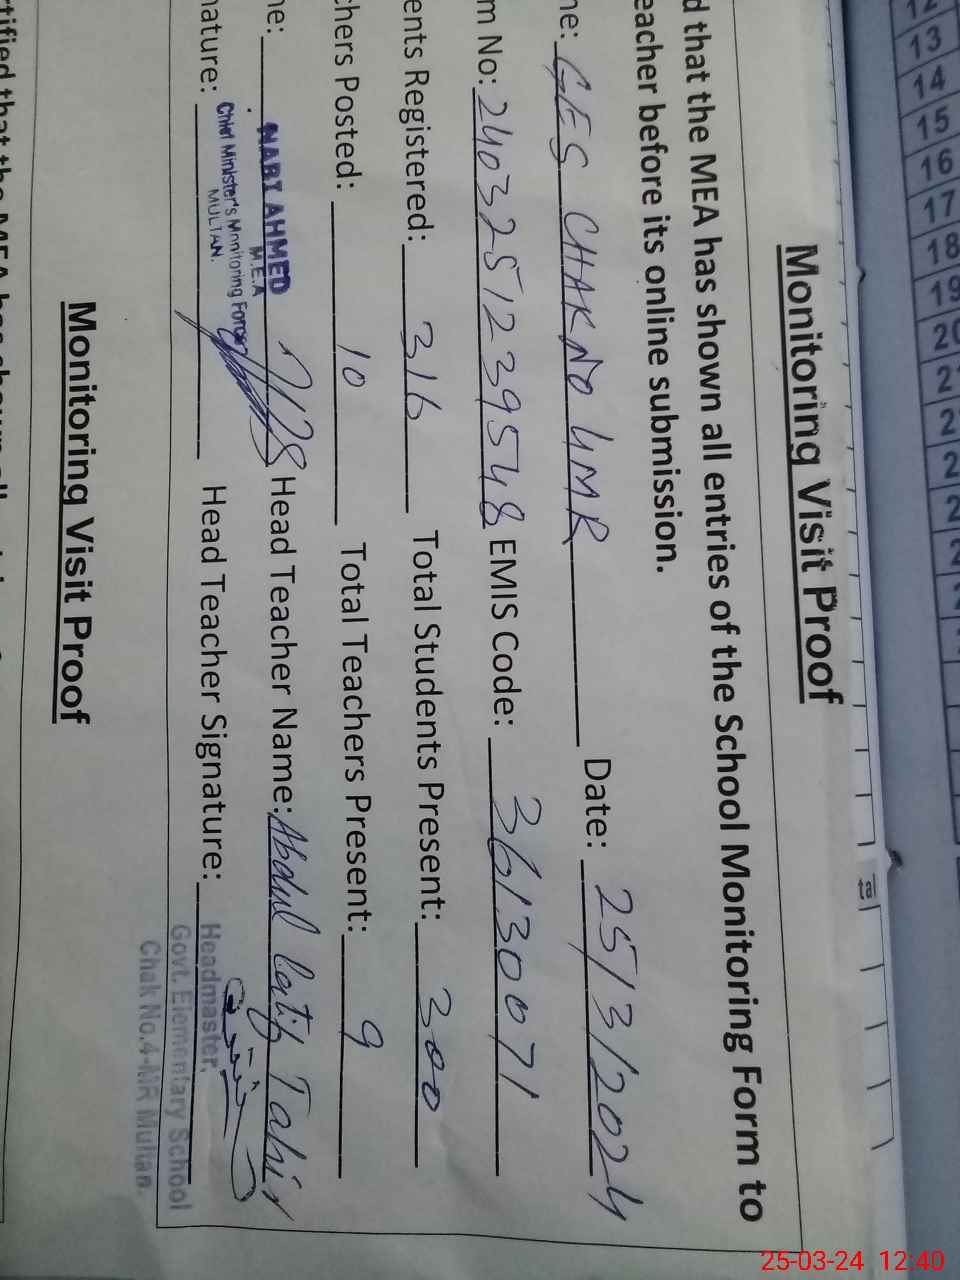 Monitoring Visit Proof
d that the MEA has shown all entries of the School Monitoring Form to
eacher before its online submission.
ne: GES CHAK NO 4MR Date: 25/3/2024
m No: 2403251239548 EMIS Code: 36130071
ents Registered: 316 Total Students Present: 300
chers Posted: 10 Total Teachers Present: 9
ne: NABI AHMED Head Teacher Name: Abdul Latif Tahir
M.E.A
Chief Minister's Monitoring Force
MULTAN.
nature: Head Teacher Signature:
Headmaster,
Govt. Elementary School
Chak No.4-MR Multan.
Monitoring Visit Proof
rtified that the MEA has shown all
12
13
14
15
16
17
18
19
25-03-24 12:40